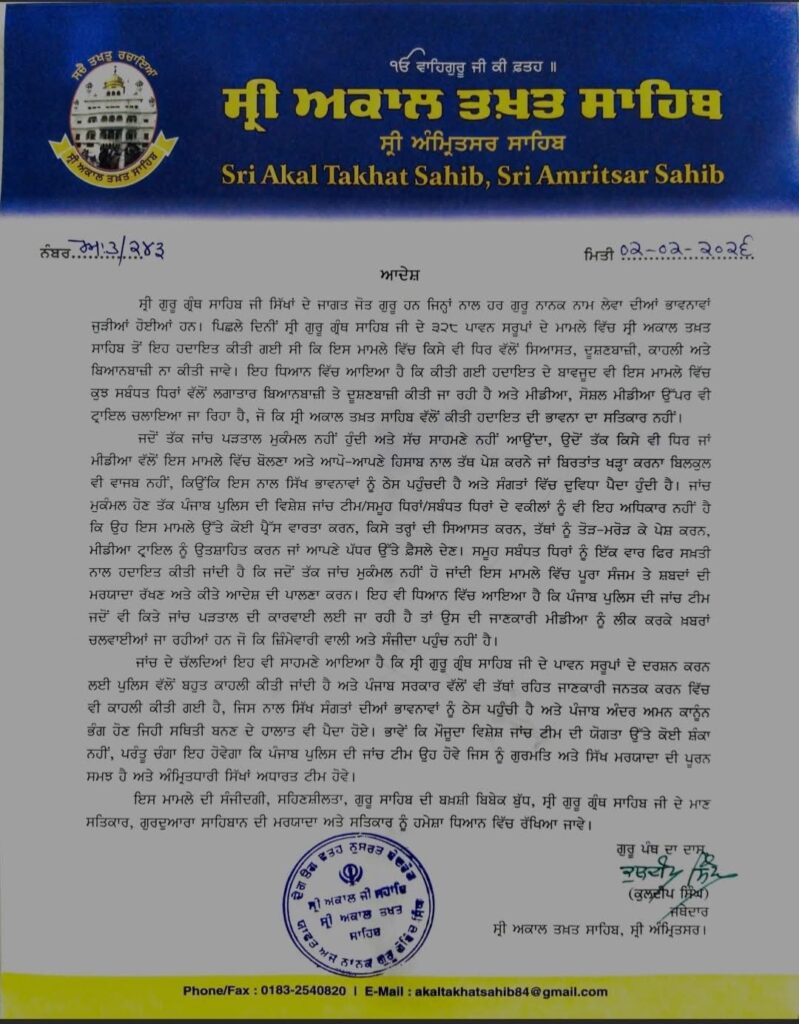 ਸਚੈ ਤਖਤੁ ਰਚਾਇਆ
ਸ੍ਰੀ ਅਕਾਲ ਤਖ਼ਤ ਸਾਹਿਬ
ੴ ਵਾਹਿਗੁਰੂ ਜੀ ਕੀ ਫ਼ਤਹ ॥
ਸ੍ਰੀ ਅਕਾਲ ਤਖ਼ਤ ਸਾਹਿਬ
ਸ੍ਰੀ ਅੰਮ੍ਰਿਤਸਰ ਸਾਹਿਬ
Sri Akal Takhat Sahib, Sri Amritsar Sahib
ਨੰਬਰ ਅ:ਤ/੨੪੩ ਮਿਤੀ ੦੨-੦੨-੨੦੨੬
ਆਦੇਸ਼
ਸ੍ਰੀ ਗੁਰੂ ਗ੍ਰੰਥ ਸਾਹਿਬ ਜੀ ਸਿੱਖਾਂ ਦੇ ਜਾਗਤ ਜੋਤ ਗੁਰੂ ਹਨ ਜਿਨ੍ਹਾਂ ਨਾਲ ਹਰ ਗੁਰੂ ਨਾਨਕ ਨਾਮ ਲੇਵਾ ਦੀਆਂ ਭਾਵਨਾਵਾਂ
ਜੁੜੀਆਂ ਹੋਈਆਂ ਹਨ। ਪਿਛਲੇ ਦਿਨੀਂ ਸ੍ਰੀ ਗੁਰੂ ਗ੍ਰੰਥ ਸਾਹਿਬ ਜੀ ਦੇ ੩੨੮ ਪਾਵਨ ਸਰੂਪਾਂ ਦੇ ਮਾਮਲੇ ਵਿੱਚ ਸ੍ਰੀ ਅਕਾਲ ਤਖ਼ਤ
ਸਾਹਿਬ ਤੋਂ ਇਹ ਹਦਾਇਤ ਕੀਤੀ ਗਈ ਸੀ ਕਿ ਇਸ ਮਾਮਲੇ ਵਿੱਚ ਕਿਸੇ ਵੀ ਧਿਰ ਵੱਲੋਂ ਸਿਆਸਤ, ਦੂਸ਼ਣਬਾਜ਼ੀ, ਕਾਹਲੀ ਅਤੇ
ਬਿਆਨਬਾਜ਼ੀ ਨਾ ਕੀਤੀ ਜਾਵੇ। ਇਹ ਧਿਆਨ ਵਿੱਚ ਆਇਆ ਹੈ ਕਿ ਕੀਤੀ ਗਈ ਹਦਾਇਤ ਦੇ ਬਾਵਜੂਦ ਵੀ ਇਸ ਮਾਮਲੇ ਵਿੱਚ
ਕੁਝ ਸਬੰਧਤ ਧਿਰਾਂ ਵੱਲੋਂ ਲਗਾਤਾਰ ਬਿਆਨਬਾਜ਼ੀ ਤੇ ਦੂਸ਼ਣਬਾਜ਼ੀ ਕੀਤੀ ਜਾ ਰਹੀ ਹੈ ਅਤੇ ਮੀਡੀਆ, ਸੋਸ਼ਲ ਮੀਡੀਆ ਉੱਪਰ ਵੀ
ਟ੍ਰਾਇਲ ਚਲਾਇਆ ਜਾ ਰਿਹਾ ਹੈ, ਜੋ ਕਿ ਸ੍ਰੀ ਅਕਾਲ ਤਖ਼ਤ ਸਾਹਿਬ ਵੱਲੋਂ ਕੀਤੀ ਹਦਾਇਤ ਦੀ ਭਾਵਨਾ ਦਾ ਸਤਿਕਾਰ ਨਹੀਂ।
ਜਦੋਂ ਤੱਕ ਜਾਂਚ ਪੜਤਾਲ ਮੁਕੰਮਲ ਨਹੀਂ ਹੁੰਦੀ ਅਤੇ ਸੱਚ ਸਾਹਮਣੇ ਨਹੀਂ ਆਉਂਦਾ, ਉਦੋਂ ਤੱਕ ਕਿਸੇ ਵੀ ਧਿਰ ਜਾਂ
ਮੀਡੀਆ ਵੱਲੋਂ ਇਸ ਮਾਮਲੇ ਵਿੱਚ ਬੋਲਣਾ ਅਤੇ ਆਪੋ-ਆਪਣੇ ਹਿਸਾਬ ਨਾਲ ਤੱਥ ਪੇਸ਼ ਕਰਨੇ ਜਾਂ ਬਿਰਤਾਂਤ ਖੜ੍ਹਾ ਕਰਨਾ ਬਿਲਕੁਲ
ਵੀ ਵਾਜਬ ਨਹੀਂ, ਕਿਉਂਕਿ ਇਸ ਨਾਲ ਸਿੱਖ ਭਾਵਨਾਵਾਂ ਨੂੰ ਠੇਸ ਪਹੁੰਚਦੀ ਹੈ ਅਤੇ ਸੰਗਤਾਂ ਵਿੱਚ ਦੁਵਿਧਾ ਪੈਦਾ ਹੁੰਦੀ ਹੈ। ਜਾਂਚ
ਮੁਕੰਮਲ ਹੋਣ ਤੱਕ ਪੰਜਾਬ ਪੁਲਿਸ ਦੀ ਵਿਸ਼ੇਸ਼ ਜਾਂਚ ਟੀਮ/ਸਮੂਹ ਧਿਰਾਂ/ਸਬੰਧਤ ਧਿਰਾਂ ਦੇ ਵਕੀਲਾਂ ਨੂੰ ਵੀ ਇਹ ਅਧਿਕਾਰ ਨਹੀਂ ਹੈ
ਕਿ ਉਹ ਇਸ ਮਾਮਲੇ ਉੱਤੇ ਕੋਈ ਪ੍ਰੈੱਸ ਵਾਰਤਾ ਕਰਨ, ਕਿਸੇ ਤਰ੍ਹਾਂ ਦੀ ਸਿਆਸਤ ਕਰਨ, ਤੱਥਾਂ ਨੂੰ ਤੋੜ-ਮਰੋੜ ਕੇ ਪੇਸ਼ ਕਰਨ,
ਮੀਡੀਆ ਟ੍ਰਾਇਲ ਨੂੰ ਉਤਸ਼ਾਹਿਤ ਕਰਨ ਜਾਂ ਆਪਣੇ ਪੱਧਰ ਉੱਤੇ ਫ਼ੈਸਲੇ ਦੇਣ। ਸਮੂਹ ਸਬੰਧਤ ਧਿਰਾਂ ਨੂੰ ਇੱਕ ਵਾਰ ਫਿਰ ਸਖ਼ਤੀ
ਨਾਲ ਹਦਾਇਤ ਕੀਤੀ ਜਾਂਦੀ ਹੈ ਕਿ ਜਦੋਂ ਤੱਕ ਜਾਂਚ ਮੁਕੰਮਲ ਨਹੀਂ ਹੋ ਜਾਂਦੀ ਇਸ ਮਾਮਲੇ ਵਿੱਚ ਪੂਰਾ ਸੰਜਮ ਤੇ ਸ਼ਬਦਾਂ ਦੀ
ਮਰਯਾਦਾ ਰੱਖਣ ਅਤੇ ਕੀਤੇ ਆਦੇਸ਼ ਦੀ ਪਾਲਣਾ ਕਰਨ। ਇਹ ਵੀ ਧਿਆਨ ਵਿੱਚ ਆਇਆ ਹੈ ਕਿ ਪੰਜਾਬ ਪੁਲਿਸ ਦੀ ਜਾਂਚ ਟੀਮ
ਜਦੋਂ ਵੀ ਕਿਤੇ ਜਾਂਚ ਪੜਤਾਲ ਦੀ ਕਾਰਵਾਈ ਲਈ ਜਾ ਰਹੀ ਹੈ ਤਾਂ ਉਸ ਦੀ ਜਾਣਕਾਰੀ ਮੀਡੀਆ ਨੂੰ ਲੀਕ ਕਰਕੇ ਖ਼ਬਰਾਂ
ਚਲਵਾਈਆਂ ਜਾ ਰਹੀਆਂ ਹਨ ਜੋ ਕਿ ਜ਼ਿੰਮੇਵਾਰੀ ਵਾਲੀ ਅਤੇ ਸੰਜੀਦਾ ਪਹੁੰਚ ਨਹੀਂ ਹੈ।
ਜਾਂਚ ਦੇ ਚੱਲਦਿਆਂ ਇਹ ਵੀ ਸਾਹਮਣੇ ਆਇਆ ਹੈ ਕਿ ਸ੍ਰੀ ਗੁਰੂ ਗ੍ਰੰਥ ਸਾਹਿਬ ਜੀ ਦੇ ਪਾਵਨ ਸਰੂਪਾਂ ਦੇ ਦਰਸ਼ਨ ਕਰਨ
ਲਈ ਪੁਲਿਸ ਵੱਲੋਂ ਬਹੁਤ ਕਾਹਲੀ ਕੀਤੀ ਜਾਂਦੀ ਹੈ ਅਤੇ ਪੰਜਾਬ ਸਰਕਾਰ ਵੱਲੋਂ ਵੀ ਤੱਥਾਂ ਰਹਿਤ ਜਾਣਕਾਰੀ ਜਨਤਕ ਕਰਨ ਵਿੱਚ
ਵੀ ਕਾਹਲੀ ਕੀਤੀ ਗਈ ਹੈ, ਜਿਸ ਨਾਲ ਸਿੱਖ ਸੰਗਤਾਂ ਦੀਆਂ ਭਾਵਨਾਵਾਂ ਨੂੰ ਠੇਸ ਪਹੁੰਚੀ ਹੈ ਅਤੇ ਪੰਜਾਬ ਅੰਦਰ ਅਮਨ ਕਾਨੂੰਨ
ਭੰਗ ਹੋਣ ਜਿਹੀ ਸਥਿਤੀ ਬਣਨ ਦੇ ਹਾਲਾਤ ਵੀ ਪੈਦਾ ਹੋਏ। ਭਾਵੇਂ ਕਿ ਮੌਜੂਦਾ ਵਿਸ਼ੇਸ਼ ਜਾਂਚ ਟੀਮ ਦੀ ਯੋਗਤਾ ਉੱਤੇ ਕੋਈ ਸ਼ੰਕਾ
ਨਹੀਂ, ਪਰੰਤੂ ਚੰਗਾ ਇਹ ਹੋਵੇਗਾ ਕਿ ਪੰਜਾਬ ਪੁਲਿਸ ਦੀ ਜਾਂਚ ਟੀਮ ਉਹ ਹੋਵੇ ਜਿਸ ਨੂੰ ਗੁਰਮਤਿ ਅਤੇ ਸਿੱਖ ਮਰਯਾਦਾ ਦੀ ਪੂਰਨ
ਸਮਝ ਹੈ ਅਤੇ ਅੰਮ੍ਰਿਤਧਾਰੀ ਸਿੱਖਾਂ ਅਧਾਰਤ ਟੀਮ ਹੋਵੇ।
ਇਸ ਮਾਮਲੇ ਦੀ ਸੰਜੀਦਗੀ, ਸਹਿਣਸ਼ੀਲਤਾ, ਗੁਰੂ ਸਾਹਿਬ ਦੀ ਬਖ਼ਸ਼ੀ ਬਿਬੇਕ ਬੁੱਧ, ਸ੍ਰੀ ਗੁਰੂ ਗ੍ਰੰਥ ਸਾਹਿਬ ਜੀ ਦੇ ਮਾਣ
ਸਤਿਕਾਰ, ਗੁਰਦੁਆਰਾ ਸਾਹਿਬਾਨ ਦੀ ਮਰਯਾਦਾ ਅਤੇ ਸਤਿਕਾਰ ਨੂੰ ਹਮੇਸ਼ਾ ਧਿਆਨ ਵਿੱਚ ਰੱਖਿਆ ਜਾਵੇ।
ਗੁਰੂ ਪੰਥ ਦਾ ਦਾਸ
ਕੁਲਦੀਪ ਸਿੰਘ
(ਕੁਲਦੀਪ ਸਿੰਘ)
ਜਥੇਦਾਰ
ਸ੍ਰੀ ਅਕਾਲ ਤਖ਼ਤ ਸਾਹਿਬ, ਸ੍ਰੀ ਅੰਮ੍ਰਿਤਸਰ।
ਦੇਗ ਤੇਗ ਫਤਹ ਨੁਸਰਤ ਬੇਦਰੰਗ
ਯਾਫਤ ਅਜ ਨਾਨਕ ਗੁਰੂ ਗੋਬਿੰਦ ਸਿੰਘ
ਸ੍ਰੀ ਅਕਾਲ ਜੀ ਸਹਾਇ
ਸ੍ਰੀ ਅਕਾਲ ਤਖਤ
ਸਾਹਿਬ
Phone/Fax : 0183-2540820 | E-Mail : akaltakhatsahib84@gmail.com